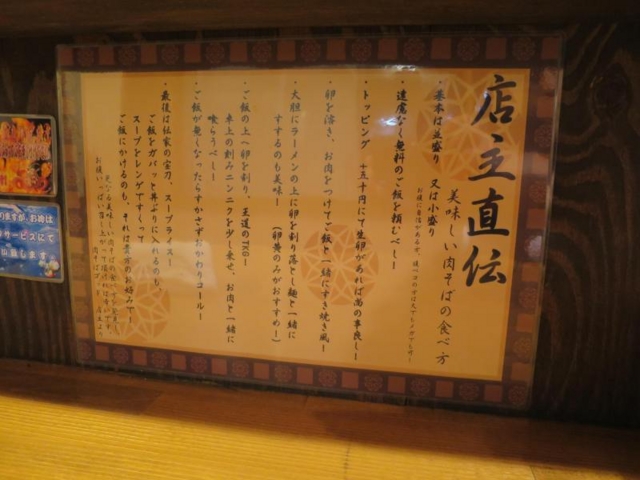 店主直伝
美味しい肉そばの食べ方
・基本は並盛り 又は小盛り
・遠慮なく無料のご飯を頼むべし!
・トッピング +五十円にて生卵があれば尚の事良し!
・卵を溶き、お肉をつけてご飯と一緒にすき焼き風!
・大胆にラーメンの上に卵を割り落とし麺と一緒に
すするのも美味! (卵黄のみがおすすめ!)
・ご飯の上へ卵を割り、王道のTKG!
卓上の刻みニンニクを少し乗せ、お肉と一緒に
喰らうべし!
・ご飯が無くなったらすかさずおかわりコール!
・最後は伝家の宝刀、スープライス!
ご飯をガバッと丼ぶりに入れるのも、
スープをレンゲですくって
ご飯にかけるのも、それは貴方のお好みで!
サービスにて